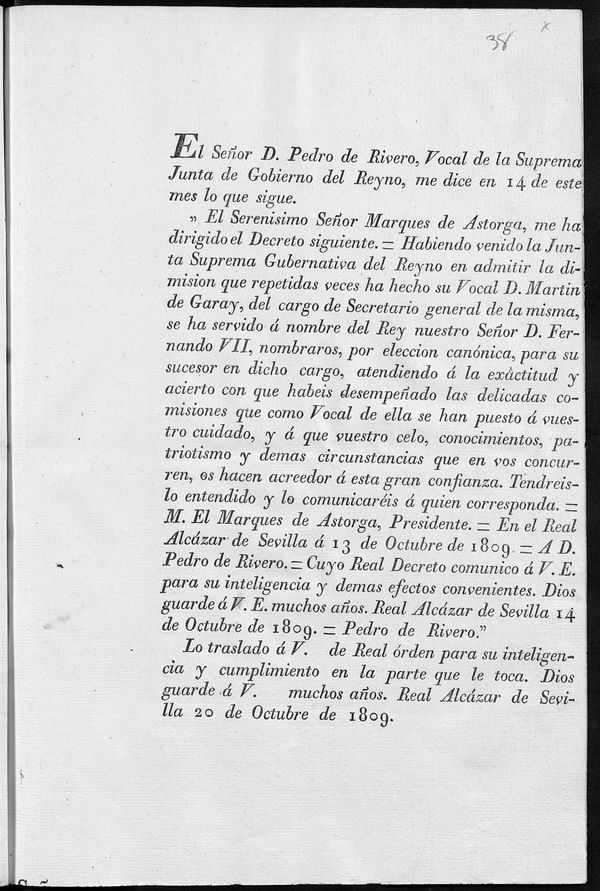 38 x
El Señor D. Pedro de Rivero, Vocal de la Suprema
Junta de Gobierno del Reyno, me dice en 14 de este
mes lo que sigue.
„ El Serenisimo Señor Marques de Astorga, me ha
dirigido el Decreto siguiente. = Habiendo venido la Jun-
ta Suprema Gubernativa del Reyno en admitir la di-
mision que repetidas veces ha hecho su Vocal D. Martin
de Garay, del cargo de Secretario general de la misma,
se ha servido á nombre del Rey nuestro Señor D. Fer-
nando VII, nombraros, por eleccion canónica, para su
sucesor en dicho cargo, atendiendo á la exâctitud y
acierto con que habeis desempeñado las delicadas co-
misiones que como Vocal de ella se han puesto á vues-
tro cuidado, y á que vuestro celo, conocimientos, pa-
triotismo y demas circunstancias que en vos concur-
ren, os hacen acreedor á esta gran confianza. Tendreis-
lo entendido y lo comunicaréis á quien corresponda. =
M. El Marques de Astorga, Presidente. = En el Real
Alcázar de Sevilla á 13 de Octubre de 1809. = A D.
Pedro de Rivero. = Cuyo Real Decreto comunico á V. E.
para su inteligencia y demas efectos convenientes. Dios
guarde á V. E. muchos años. Real Alcázar de Sevilla 14
de Octubre de 1809. = Pedro de Rivero.”
Lo traslado á V. de Real órden para su inteligen-
cia y cumplimiento en la parte que le toca. Dios
guarde á V. muchos años. Real Alcázar de Sevi-
lla 20 de Octubre de 1809.